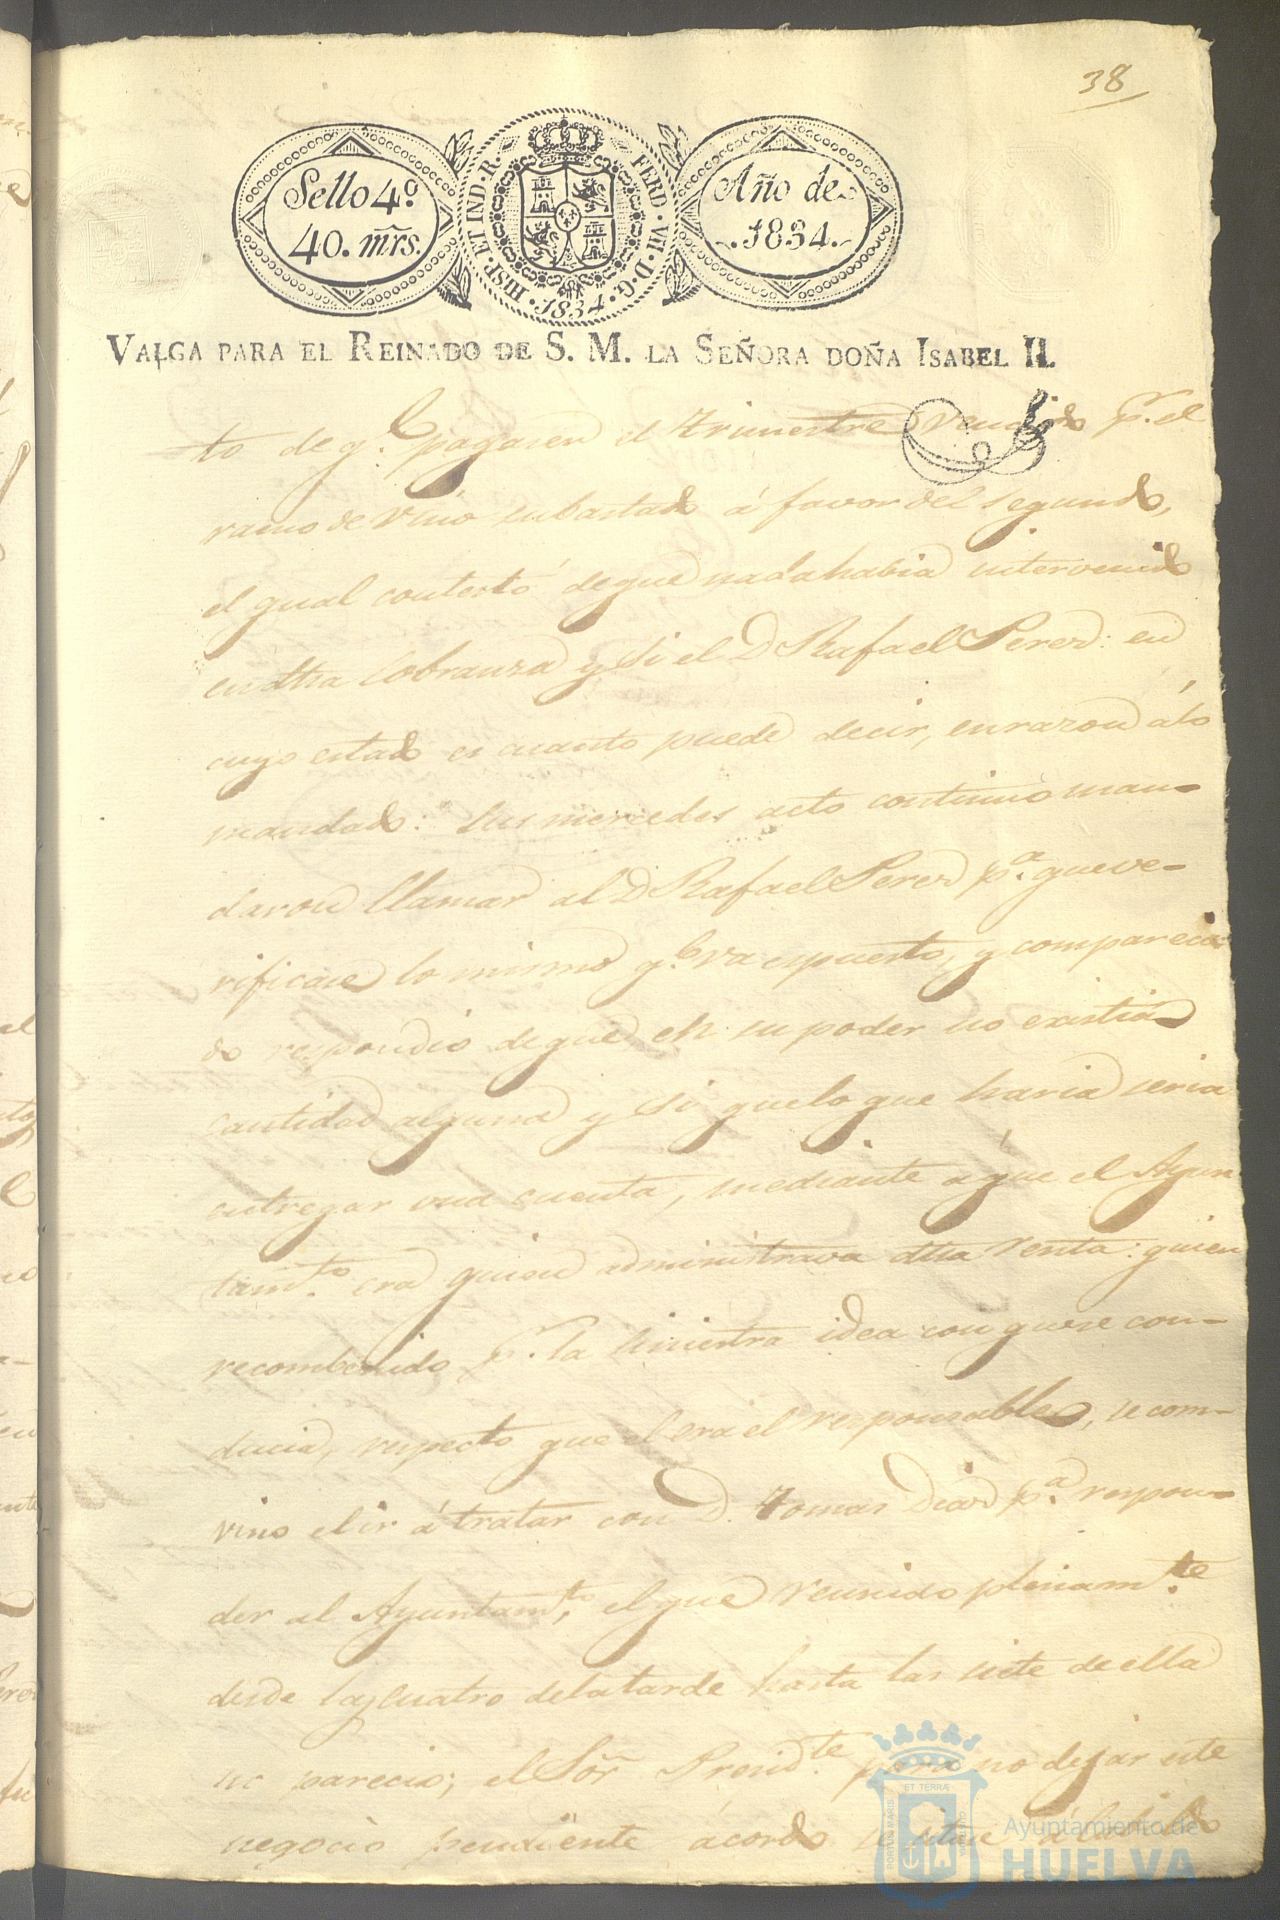 38
Sello 4º
40. mrs.
HISP. ET IND. R. FERD. VII. D. G. 1834.
Año de
1834.
VALGA PARA EL REINADO DE S. M. LA SEÑORA DOÑA ISABEL II.
to de q.e pagasen el trimestre vencido p.r el
ramo de vino subastado á favor del segundo,
el qual contestó de que nada habia intervenido
en dha cobranza y si el D Rafael Perez: en
cuyo estado es cuanto puede decir, en razon á lo
mandado: sus mercedes acto continuo man-
daron llamar al D Rafael Perez p.a que ve-
rificase lo mismo q.e va espuesto, y comparecien
do respondió de que en su poder no existia
cantidad alguna y si que lo que haria seria
entregar una cuenta, mediante á que el Ayun
tam.to era quien administrava dha renta: quien
recombenido p.r la siniestra idea con que se con-
ducia, respecto que el era el responsable, se com-
vino el ir á tratar con D. Tomas Diaz p.a respon-
der al Ayuntam.to, el que reunido plenam.te
desde las cuatro de la tarde hasta las siete de ella
no parecio; el Sor Presid.te para no dejar este
negocio pendiente acordó se cite á Cabildo
PORTUS MARIS ET TERRÆ
Ayuntamiento de
HUELVA